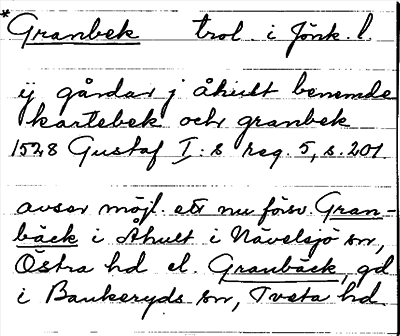 * Granbek trol. i Jönk. l.
ij gårdar j åhult benemde
kartebek och granbek
1528 Gustaf I:s reg. 5, s. 201
avser möjl. ett nu försv. Gran-
bäck i Åhult i Nävelsjö sn,
Östra hd el. Granbäck, gd
i Bankeryds sn, Tveta hd.